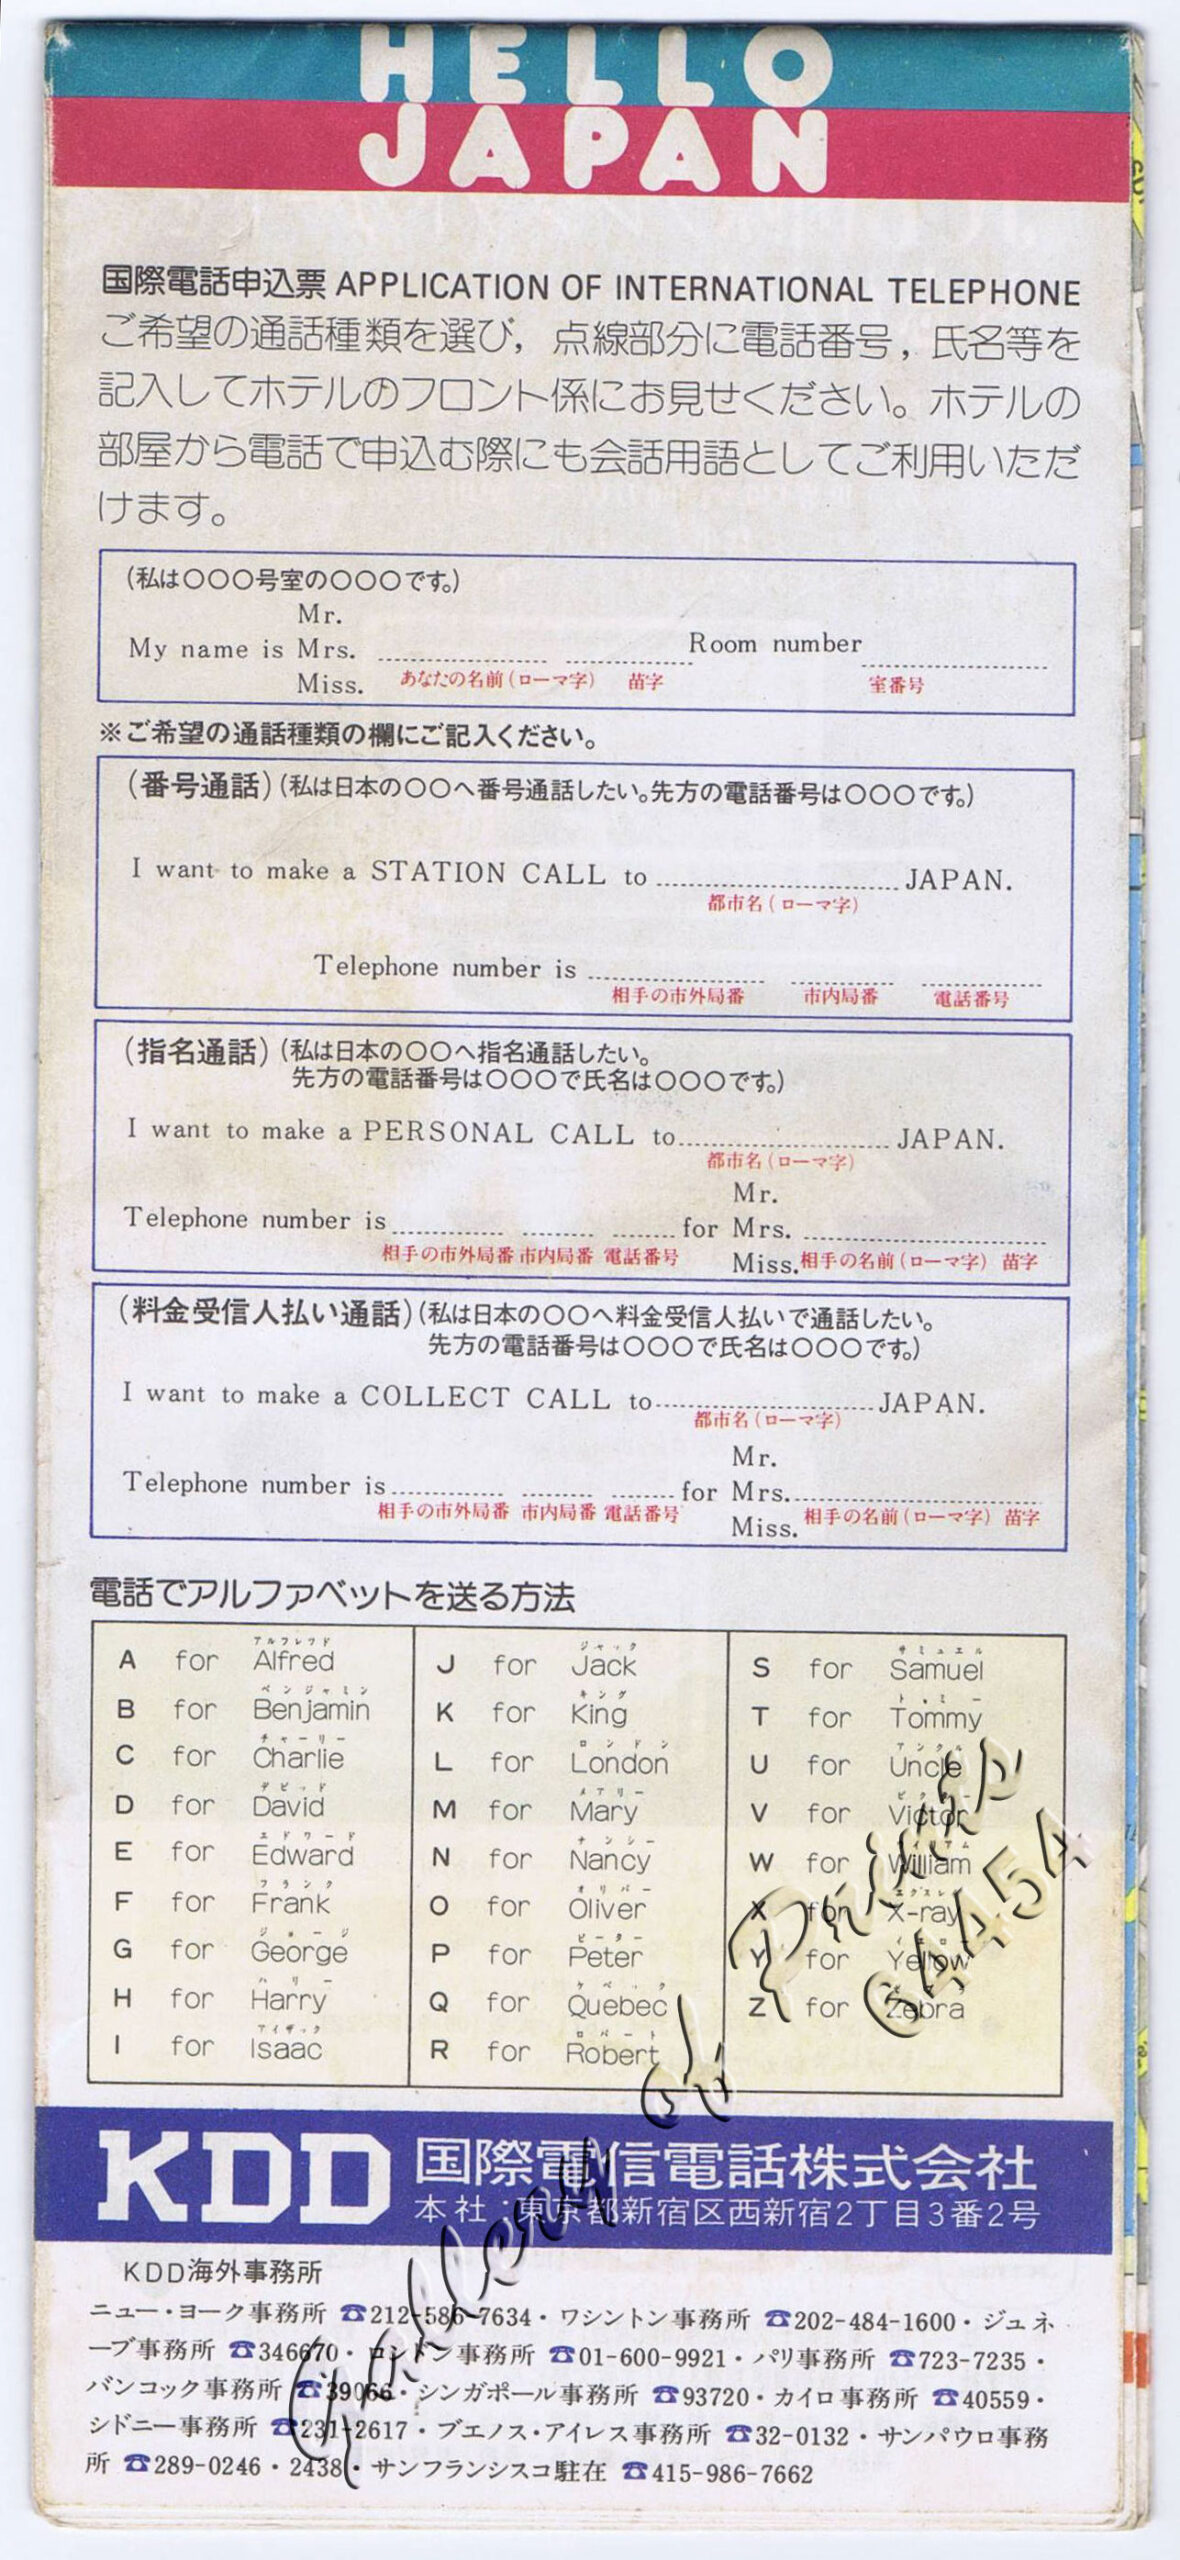 HELLO
JAPAN
国際電話申込票 APPLICATION OF INTERNATIONAL TELEPHONE
ご希望の通話種類を選び，点線部分に電話番号，氏名等を
記入してホテルのフロント係にお見せください。ホテルの
部屋から電話で申込む際にも会話用語としてご利用いただ
けます。
（私は〇〇〇号室の〇〇〇です。）
Mr.
My name is Mrs. Room number
Miss. あなたの名前（ローマ字） 苗字 室番号
※ご希望の通話種類の欄にご記入ください。
（番号通話）（私は日本の〇〇へ番号通話したい。先方の電話番号は〇〇〇です。）
I want to make a STATION CALL to JAPAN.
都市名（ローマ字）
Telephone number is
相手の市外局番 市内局番 電話番号
（指名通話）（私は日本の〇〇へ指名通話したい。
先方の電話番号は〇〇〇で氏名は〇〇〇です。）
I want to make a PERSONAL CALL to JAPAN.
都市名（ローマ字）
Mr.
Telephone number is for Mrs.
相手の市外局番 市内局番 電話番号 Miss. 相手の名前（ローマ字） 苗字
（料金受信人払い通話）（私は日本の〇〇へ料金受信人払いで通話したい。
先方の電話番号は〇〇〇で氏名は〇〇〇です。）
I want to make a COLLECT CALL to JAPAN.
都市名（ローマ字）
Mr.
Telephone number is for Mrs.
相手の市外局番 市内局番 電話番号 Miss. 相手の名前（ローマ字） 苗字
電話でアルファベットを送る方法
アルフレッド
A for Alfred
ベンジャミン
B for Benjamin
チャーリー
C for Charlie
デビッド
D for David
エドワード
E for Edward
フランク
F for Frank
ジョージ
G for George
ハリー
H for Harry
アイザック
I for Isaac
ジャック
J for Jack
キング
K for King
ロンドン
L for London
メアリー
M for Mary
ナンシー
N for Nancy
オリバー
O for Oliver
ピーター
P for Peter
ケベック
Q for Quebec
ロバート
R for Robert
サミュエル
S for Samuel
トミー
T for Tommy
アンクル
U for Uncle
V for Victor
W for William
X for X-ray
Y for Yellow
Z for Zebra
KDD 国際電信電話株式会社
本社：東京都新宿区西新宿2丁目3番2号
KDD海外事務所
ニュー・ヨーク事務所 ☎212-586-7634・ワシントン事務所 ☎202-484-1600・ジュネ
ーブ事務所 ☎346670・ロンドン事務所 ☎01-600-9921・パリ事務所 ☎723-7235・
バンコック事務所 ☎39066・シンガポール事務所 ☎93720・カイロ事務所 ☎40559・
シドニー事務所 ☎231-2617・ブエノス・アイレス事務所 ☎32-0132・サンパウロ事務
所 ☎289-0246・2438・サンフランシスコ駐在 ☎415-986-7662
Gallery of Prints
64454